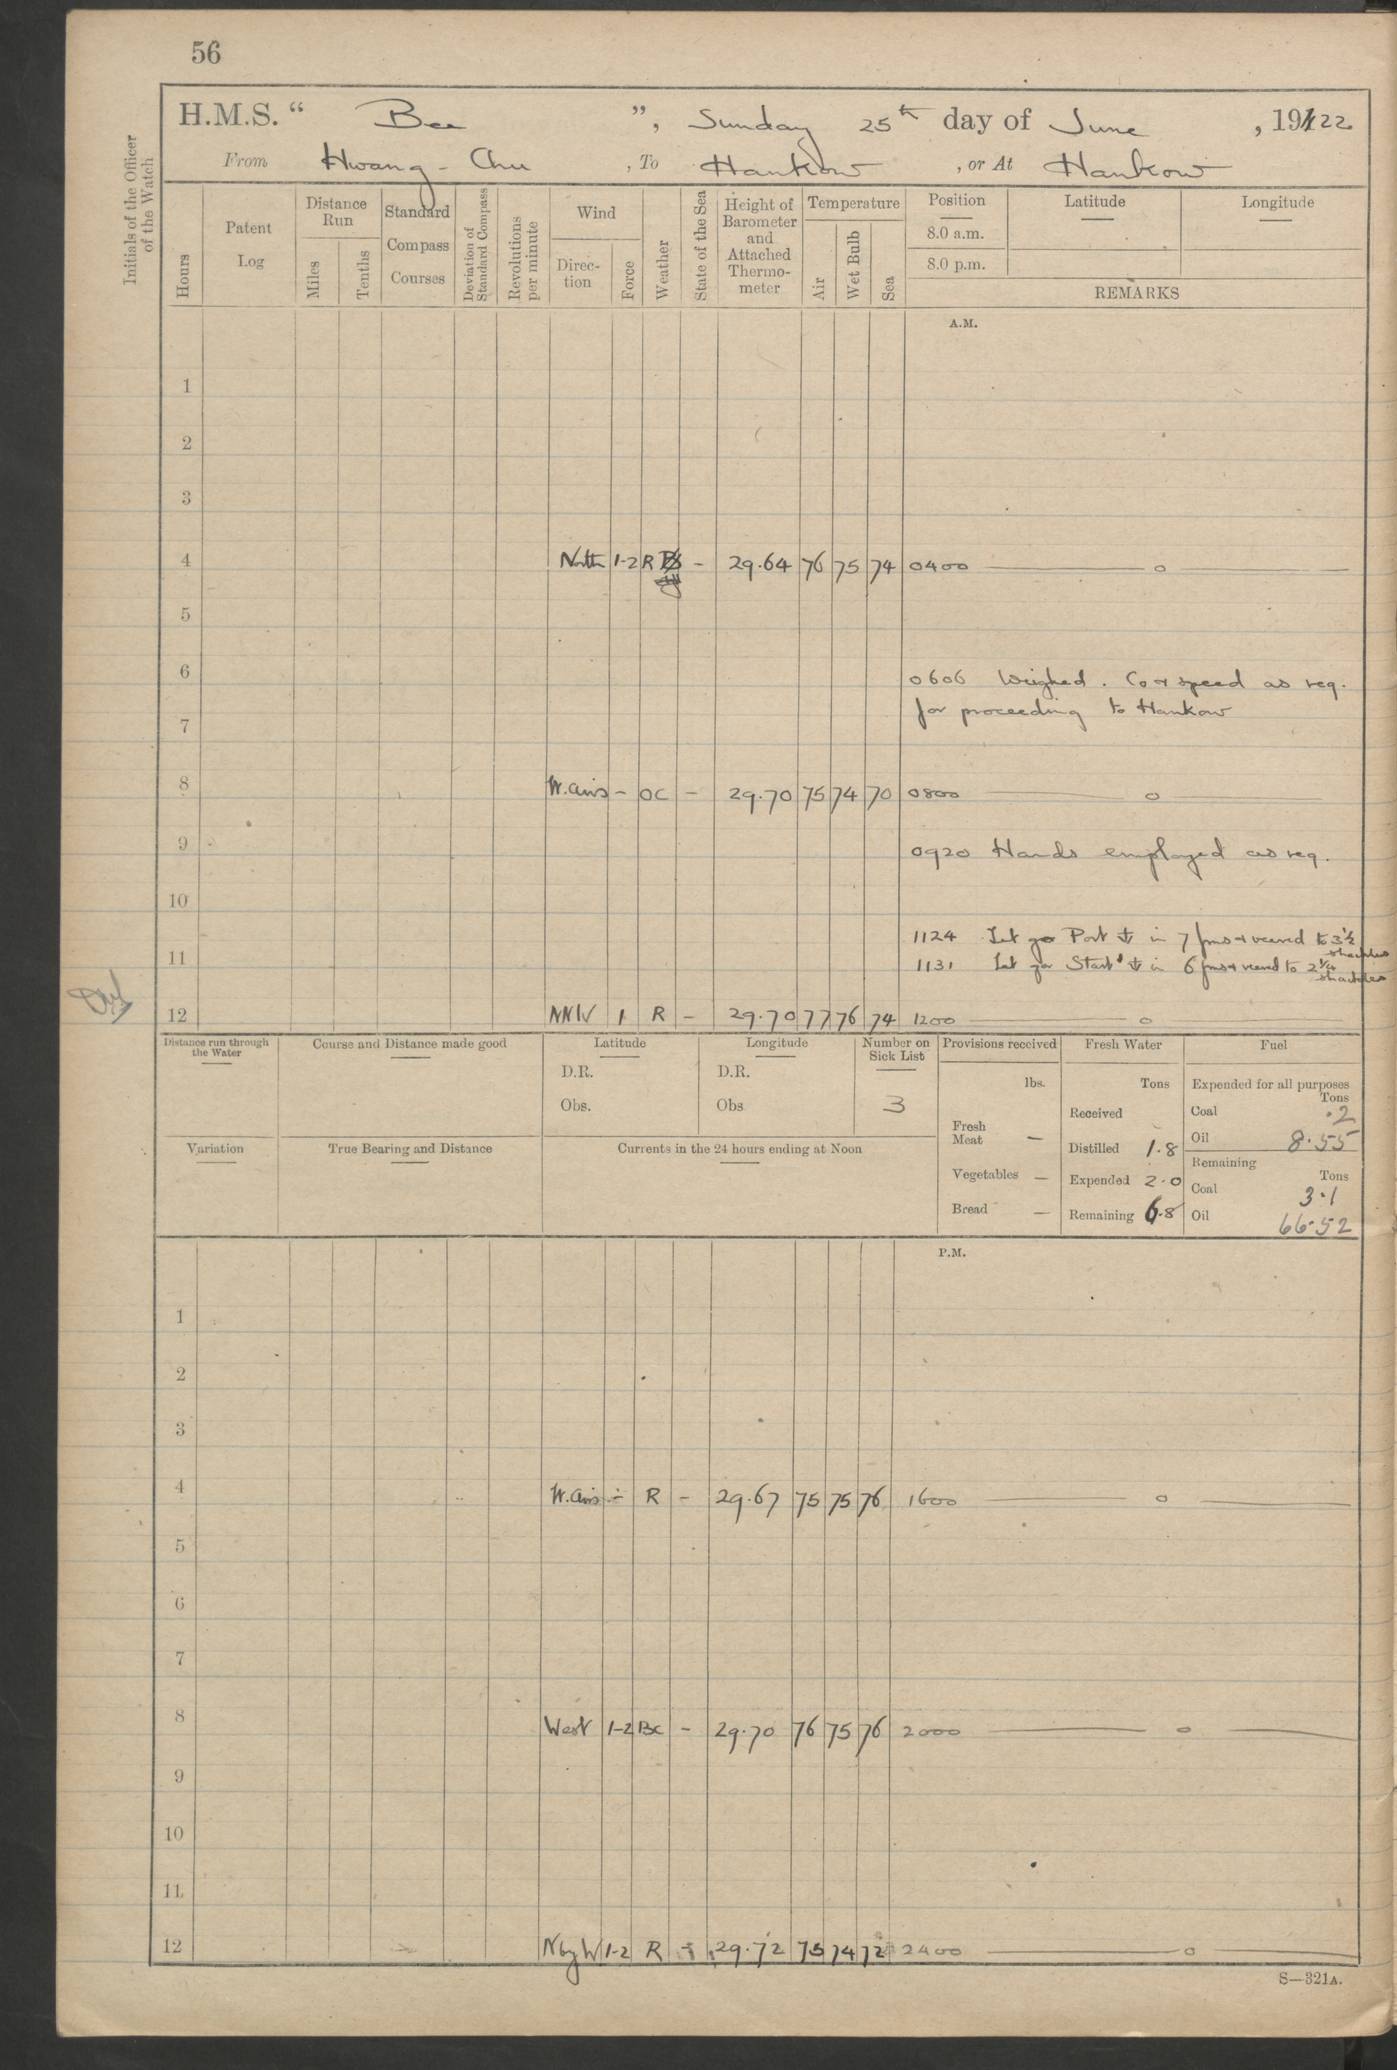 56
H.M.S. “ Bee ”, Sunday 25th day of June , 1922
From Hwang-Chu , To Hankow , or At Hankow
Initials of the Officer of the Watch
Hours
Patent Log
Distance Run
Miles
Tenths
Standard Compass Courses
Deviation of Standard Compass
Revolutions per minute
Wind
Direction
Force
Weather
State of the Sea
Height of Barometer and Attached Thermometer
Temperature
Air
Wet Bulb
Sea
Position
8.0 a.m.
8.0 p.m.
Latitude
Longitude
REMARKS
A.M.
1
2
3
4 North 1-2 R - 29.64 76 75 74 0400 — o —
5
6 0606 Weighed. Co & speed as req.
for proceeding to Hankow
7
8 W.airs - OC - 29.70 75 74 70 0800 — o —
9 0920 Hands employed as req.
10
1124 Let go Port ⚓ in 7 fms & veered to 3½ shackles
11 1131 Let go Starbd ⚓ in 6 fms & veered to 2¼ shackles
12 NNW 1 R - 29.70 77 76 74 1200 — o —
Distance run through the Water
Course and Distance made good
Latitude
D.R.
Obs.
Longitude
D.R.
Obs
Number on Sick List
3
Provisions received
lbs.
Fresh Meat —
Vegetables —
Bread —
Fresh Water
Tons
Received
Distilled 1.8
Expended 2.0
Remaining 6.8
Fuel
Expended for all purposes
Tons
Coal .2
Oil 8.55
Remaining
Tons
Coal 3.1
Oil 66.52
Variation
True Bearing and Distance
Currents in the 24 hours ending at Noon
P.M.
1
2
3
4 W.airs - R - 29.67 75 75 76 1600 — o —
5
6
7
8 West 1-2 BC - 29.70 76 75 76 2000 — o —
9
10
11
12 NbyW 1-2 R - 29.72 75 74 72 2400 — o —
S—321A.